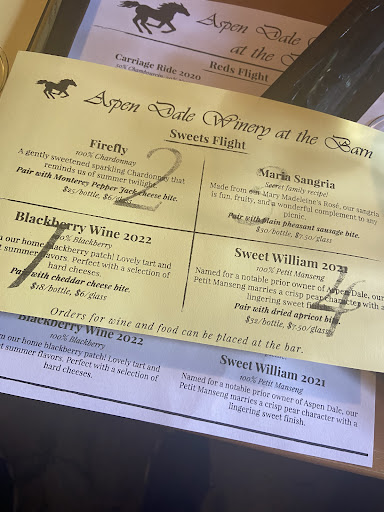 Aspen Dale
at the
Carriage Ride 2020
Reds Flight
Aspen Dale Winery at the Barn
Sweets Flight
Firefly
100% Chardonnay
A gently sweetened sparkling Chardonnay that
reminds us of summer twilight.
Pair with Monterey Pepper Jack cheese bite.
$25/bottle, $6/glass
2
Maria Sangria
Secret family recipe!
Made from our Mary Madeleine's Rosé, our sangria
is fun, fruity, and a wonderful complement to any
picnic.
Pair with plain pheasant sausage bite.
$30/bottle, $7.50/glass
3
Blackberry Wine 2022
100% Blackberry
our home blackberry patch! Lovely tart and
summer flavors. Perfect with a selection of
hard cheeses.
Pair with cheddar cheese bite.
$18/bottle, $6/glass
1
Sweet William 2021
100% Petit Manseng
Named for a notable prior owner of Aspen Dale, our
Petit Manseng marries a crisp pear character with a
lingering sweet finish.
Pair with dried apricot bite.
$32/bottle, $7.50/glass
4
Orders for wine and food can be placed at the bar.
Blackberry Wine 2022
100% Blackberry
our home blackberry patch! Lovely tart and
summer flavors. Perfect with a selection of
hard cheeses.
Sweet William 2021
100% Petit Manseng
Named for a notable prior owner of Aspen Dale, our
Petit Manseng marries a crisp pear character with a
lingering sweet finish.